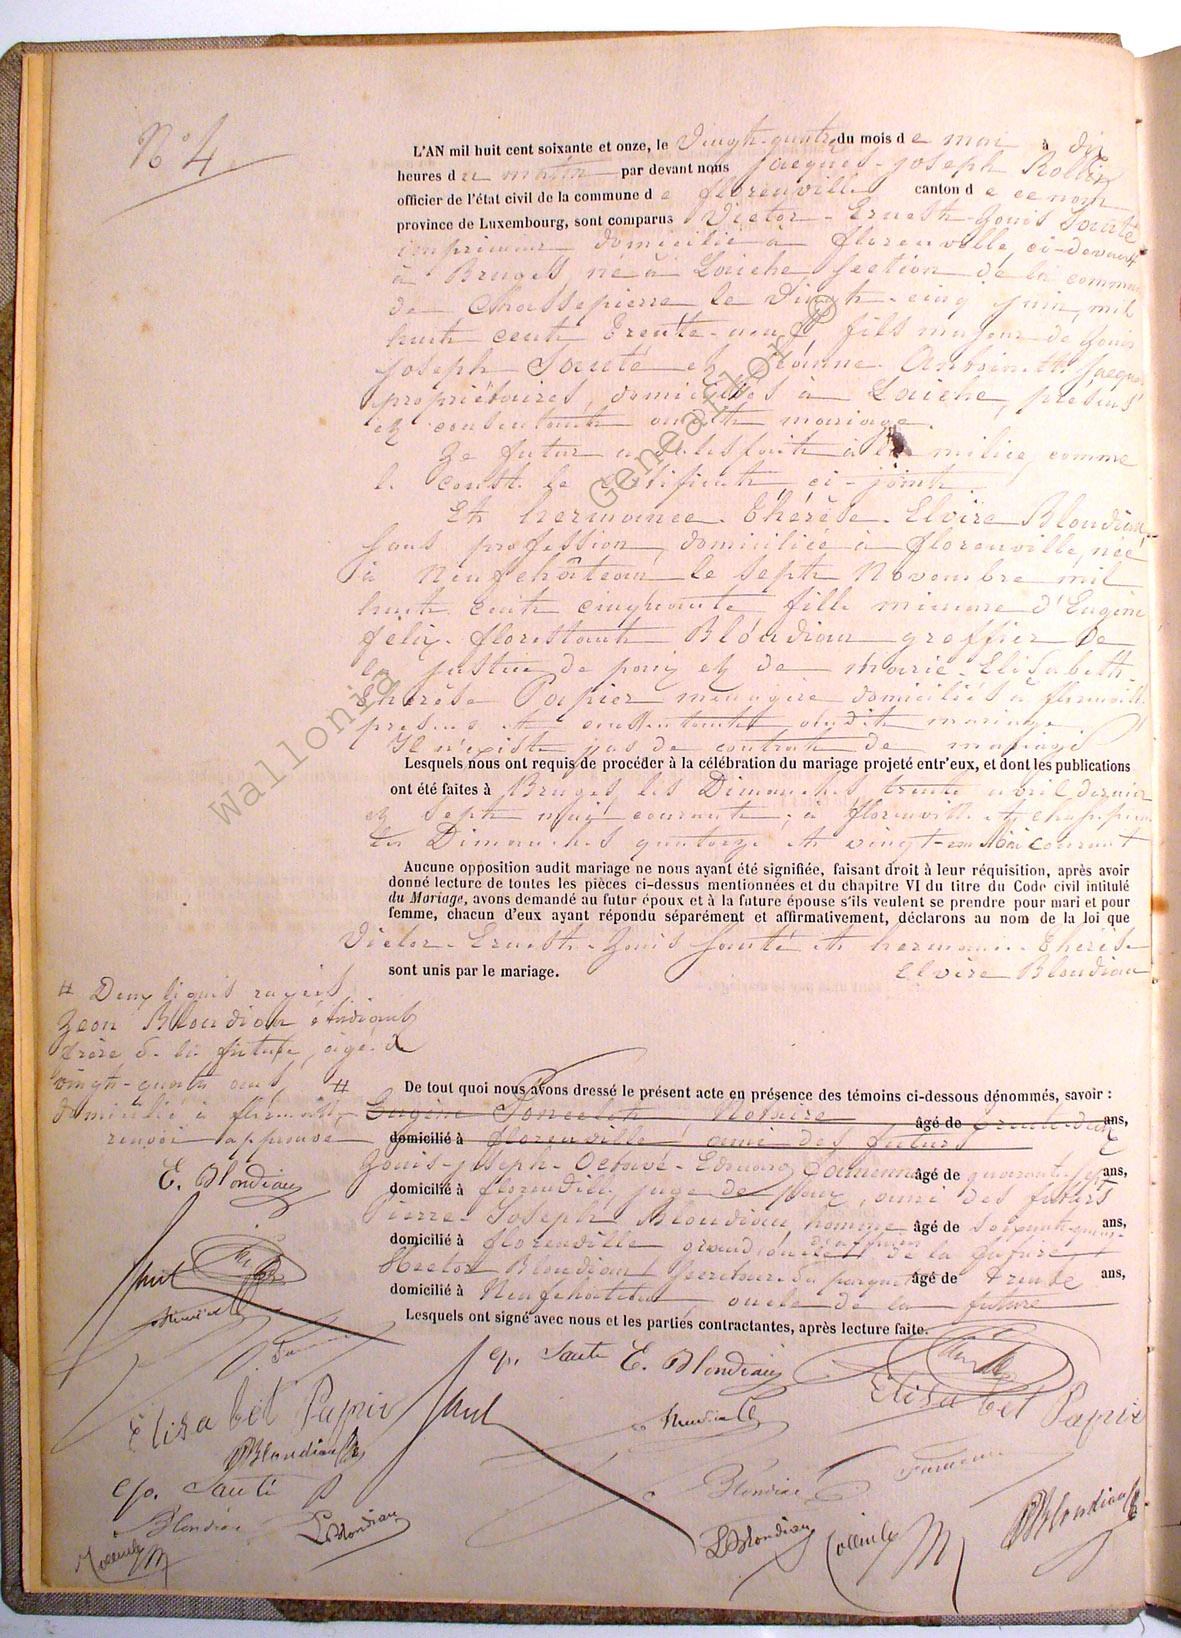 N° 4
L'AN mil huit cent soixante et onze, le Vingt-quatre du mois de mai à dix
heures du matin par devant nous Jacques-Joseph Rollin
officier de l'état civil de la commune de Florenville canton de ce nom
province de Luxembourg, sont comparus Victor-Ernest-Louis Santé
imprimeur domicilié à Florenville, ci-devant
à Bruges, né à Laiche section de la commune
de Chassepierre le Vingt-cinq juin, mil
huit cent trente-neuf, fils majeur de Louis
Joseph Santé et Jeanne Antoinette Jacques
propriétaires, domiciliés à Laiche, présens
et consentants audit mariage.
Le futur a satisfait à la milice, comme
le const. le certificat ci-joint
Et hermance-Thérèse-Elvire Blondiau
sans profession, domiciliée à Florenville, née
à Neufchâteau le sept Novembre mil
huit cent cinquante fille mineure d'Eugène
félix-florestant Blondiau greffier de
la justice de paix et de marie-Elisabeth-
Thérèse Papier ménagère domiciliés à florenville
présens et consentants audit mariage
Il n'existe pas de contrat de mariage
Lesquels nous ont requis de procéder à la célébration du mariage projeté entr'eux, et dont les publications
ont été faites à Bruges les Dimanches trente avril dernier
et sept mai courant, à florenville et chassepierre
les Dimanches quatorze et vingt-un Mai courant
Aucune opposition audit mariage ne nous ayant été signifiée, faisant droit à leur réquisition, après avoir
donné lecture de toutes les pièces ci-dessus mentionnées et du chapitre VI du titre du Code civil intitulé
du Mariage, avons demandé au futur époux et à la future épouse s'ils veulent se prendre pour mari et pour
femme, chacun d'eux ayant répondu séparément et affirmativement, déclarons au nom de la loi que
Victor-Ernest-Louis Santé et hermance-Thérèse
Elvire Blondiau
sont unis par le mariage.
# Deux lignes rayées
Léon Blondiau étudiant
frère de la future, âgé de
vingt-quatre ans,
domicilié à florenville
renvoi approuvé
De tout quoi nous avons dressé le présent acte en présence des témoins ci-dessous dénommés, savoir :
# Eugène Poncelet, Notaire âgé de trente-deux ans,
domicilié à florenville, ami des futurs
Louis-joseph-Octave-Edouard âgé de quarante-sept ans,
domicilié à florenville juge de paix ami des futurs
Pierre-Joseph Blondiau âgé de ans,
domicilié à florenville de la future
Hector Blondiau Secrétaire du parquet âgé de trente ans,
domicilié à Neufchâteau oncle de la future
Lesquels ont signé avec nous et les parties contractantes, après lecture faite.
E. Blondiau
ep. Santé E. Blondiau
Elisabet Papier
Elisabet Papier
Blondiau
ep. Santé
Blondiau
L Blondiau
Blondiau
L Blondiau
Blondiau
Wallonia Genealitor ©